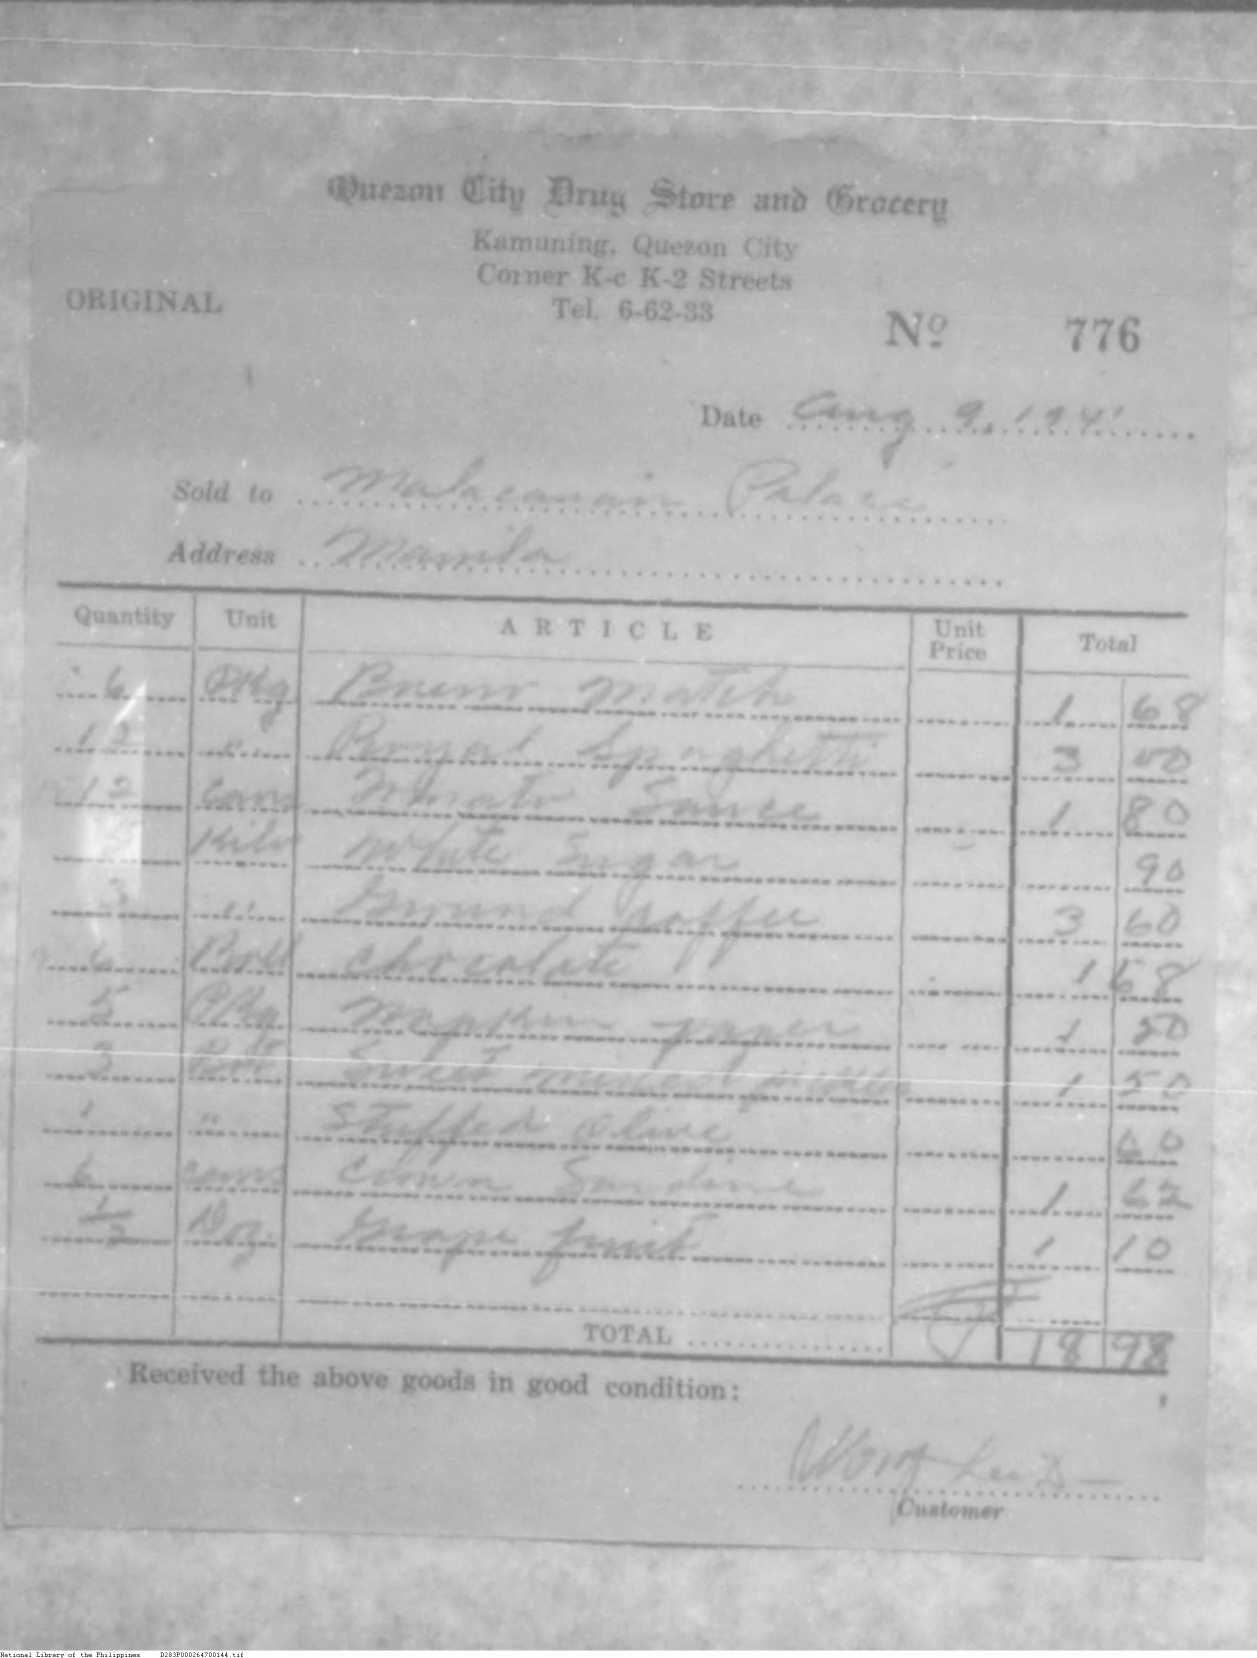 Quezon City Drug Store and Grocery
Kamuning, Quezon City
Corner K-c K-2 Streets
ORIGINAL
Tel. 6-62-33
Nº 776
Date Aug 9, 1941
Sold to Malacanan Palace
Address Manila
Quantity Unit ARTICLE Unit Price Total
6 Pkg Match 1 68
12 " Royal Spaghetti 3 00
12 Cans Tomato Sauce 1 80
Kilo White Sugar 90
3 " Ground Coffee 3 60
6 chocolate 1 68
5 Pkg Napkin paper 1 50
3 Bot Sweet 1 50
1 " Stuffed Olive 60
6 cans Crown Sardine 1 62
1/2 Doz. Grape fruit 1 10
TOTAL 18 98
Received the above goods in good condition:
Customer
National Library of the Philippines D283P000264700144.tif